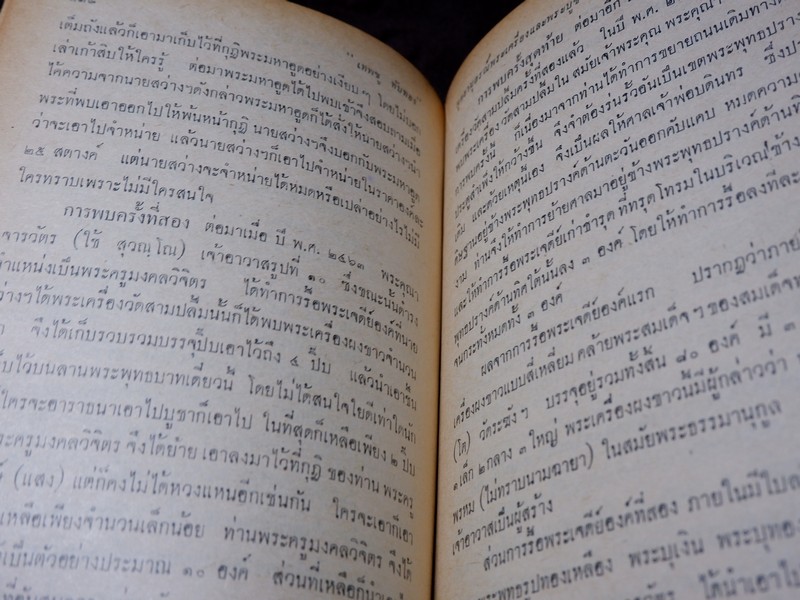 เต็มถังแล้วก็เอามาเก็บไว้ที่กุฏิพระมหาอูดอย่างเงียบๆ โดยไม่บอก
เล่าเก้าสิบให้ใครรู้ ต่อมาพระมหาอูดได้ไปพบเข้าจึงสอบถามเมื่อ
ได้ความจากนายสว่างๆดังกล่าวพระมหาอูดก็ได้สั่งให้นายสว่างๆนำ
พระที่พบเอาออกไปให้พ้นหน้ากุฏิ นายสว่างๆจึงบอกกับพระมหาอูด
ว่าจะเอาไปจำหน่าย แล้วนายสว่างๆก็เอาไปจำหน่ายในราคาองค์ละ
๒๕ สตางค์ แต่นายสว่างจะจำหน่ายได้หมดหรือเปล่าอย่างไรไม่มี
ใครทราบเพราะไม่มีใครสนใจ
การพบครั้งที่สอง ต่อมาเมื่อ ปี พ.ศ. ๒๔๖๓ พระคุณา
จารวัตร (ใช้ สุวณฺโณ) เจ้าอาวาสรูปที่ ๑๐ ซึ่งขณะนั้นดำรง
ตำแหน่งเป็นพระครูมงคลวิจิตร ได้ทำการรื้อพระเจดีย์องค์ที่นาย
ว่างๆได้พระเครื่องวัดสามปลื้มนั้นก็ได้พบพระเครื่องผงขาวจำนวน
จึงได้เก็บรวบรวมบรรจุปี๊บเอาไว้ถึง ๔ ปี๊บ แล้วนำเอาขึ้น
เก็บไว้บนลานพระพุทธบาทเดี๋ยวนี้ โดยไม่ได้สนใจใยดีเท่าใดนัก
ใครจะอาราธนาเอาไปบูชาก็เอาไป ในที่สุดก็เหลือเพียง ๒ ปี๊บ
พระครูมงคลวิจิตร จึงได้ย้าย เอาลงมาไว้ที่กุฏิ ของท่าน พระครู
(แสง) แต่ก็คงไม่ได้หวงแหนอีกเช่นกัน ใครจะเอาก็เอา
เหลือเพียงจำนวนเล็กน้อย ท่านพระครูมงคลวิจิตร จึงได้
เป็นตัวอย่างประมาณ ๑๐ องค์ ส่วนที่เหลือก็นำเอา
การพบครั้งสุดท้าย ต่อมาอีก
เครื่องวัดสามปลื้มครั้งที่สองแล้ว ในปี พ.ศ. ๒
พบพระเครื่อง วัดสามปลื้มใน สมัยเจ้าพระคุณ พระคุณา
การพบครั้งนี้ ก็เนื่องมาจากท่านได้ทำการขยายถนนเดินทาง
ประตูสำเพ็งให้กว้างขึ้น จึงจำต้องร่นรั้วอันเป็นเขตพระพุทธปรางค์
เดิม และด้วยเหตุนี้เอง จึงเป็นผลให้ศาลเจ้าพ่อบดินทร ซึ่งประ
ดิษฐานอยู่ข้างพระพุทธปรางค์ด้านตะวันออกคับแคบ หมดความ
งาม ท่านจึงให้ทำการย้ายศาลมาอยู่ข้างพระพุทธปรางค์ด้านทิ
และให้ทำการรื้อพระเจดีย์เก่าชำรุด ที่ทรุดโทรมในบริเวณข้าง
พุทธปรางค์ด้านทิศใต้นั้นลง ๓ องค์ โดยให้ทำการรื้อลงทีละ
จนกระทั่งหมดทั้ง ๓ องค์
ผลจากการรื้อพระเจดีย์องค์แรก ปรากฏว่าภาย
เครื่องผงขาวแบบสี่เหลี่ยม คล้ายพระสมเด็จๆ ของสมเด็จพ
(โต) วัดระฆังๆ บรรจุอยู่รวมทั้งสิ้น ๘๐ องค์ มี ๓
๑เล็ก ๒กลาง ๓ใหญ่ พระเครื่องผงขาวนี้มีผู้กล่าวว่า
พรหม (ไม่ทราบนามฉายา) ในสมัยพระธรรมานุกูล
เจ้าอาวาสเป็นผู้สร้าง
ส่วนการรื้อพระเจดีย์องค์ที่สอง ภายในมีใบล
พระพุทธรูปทองเหลือง พระบุเงิน พระบุทอง
ได้นำเอาไป